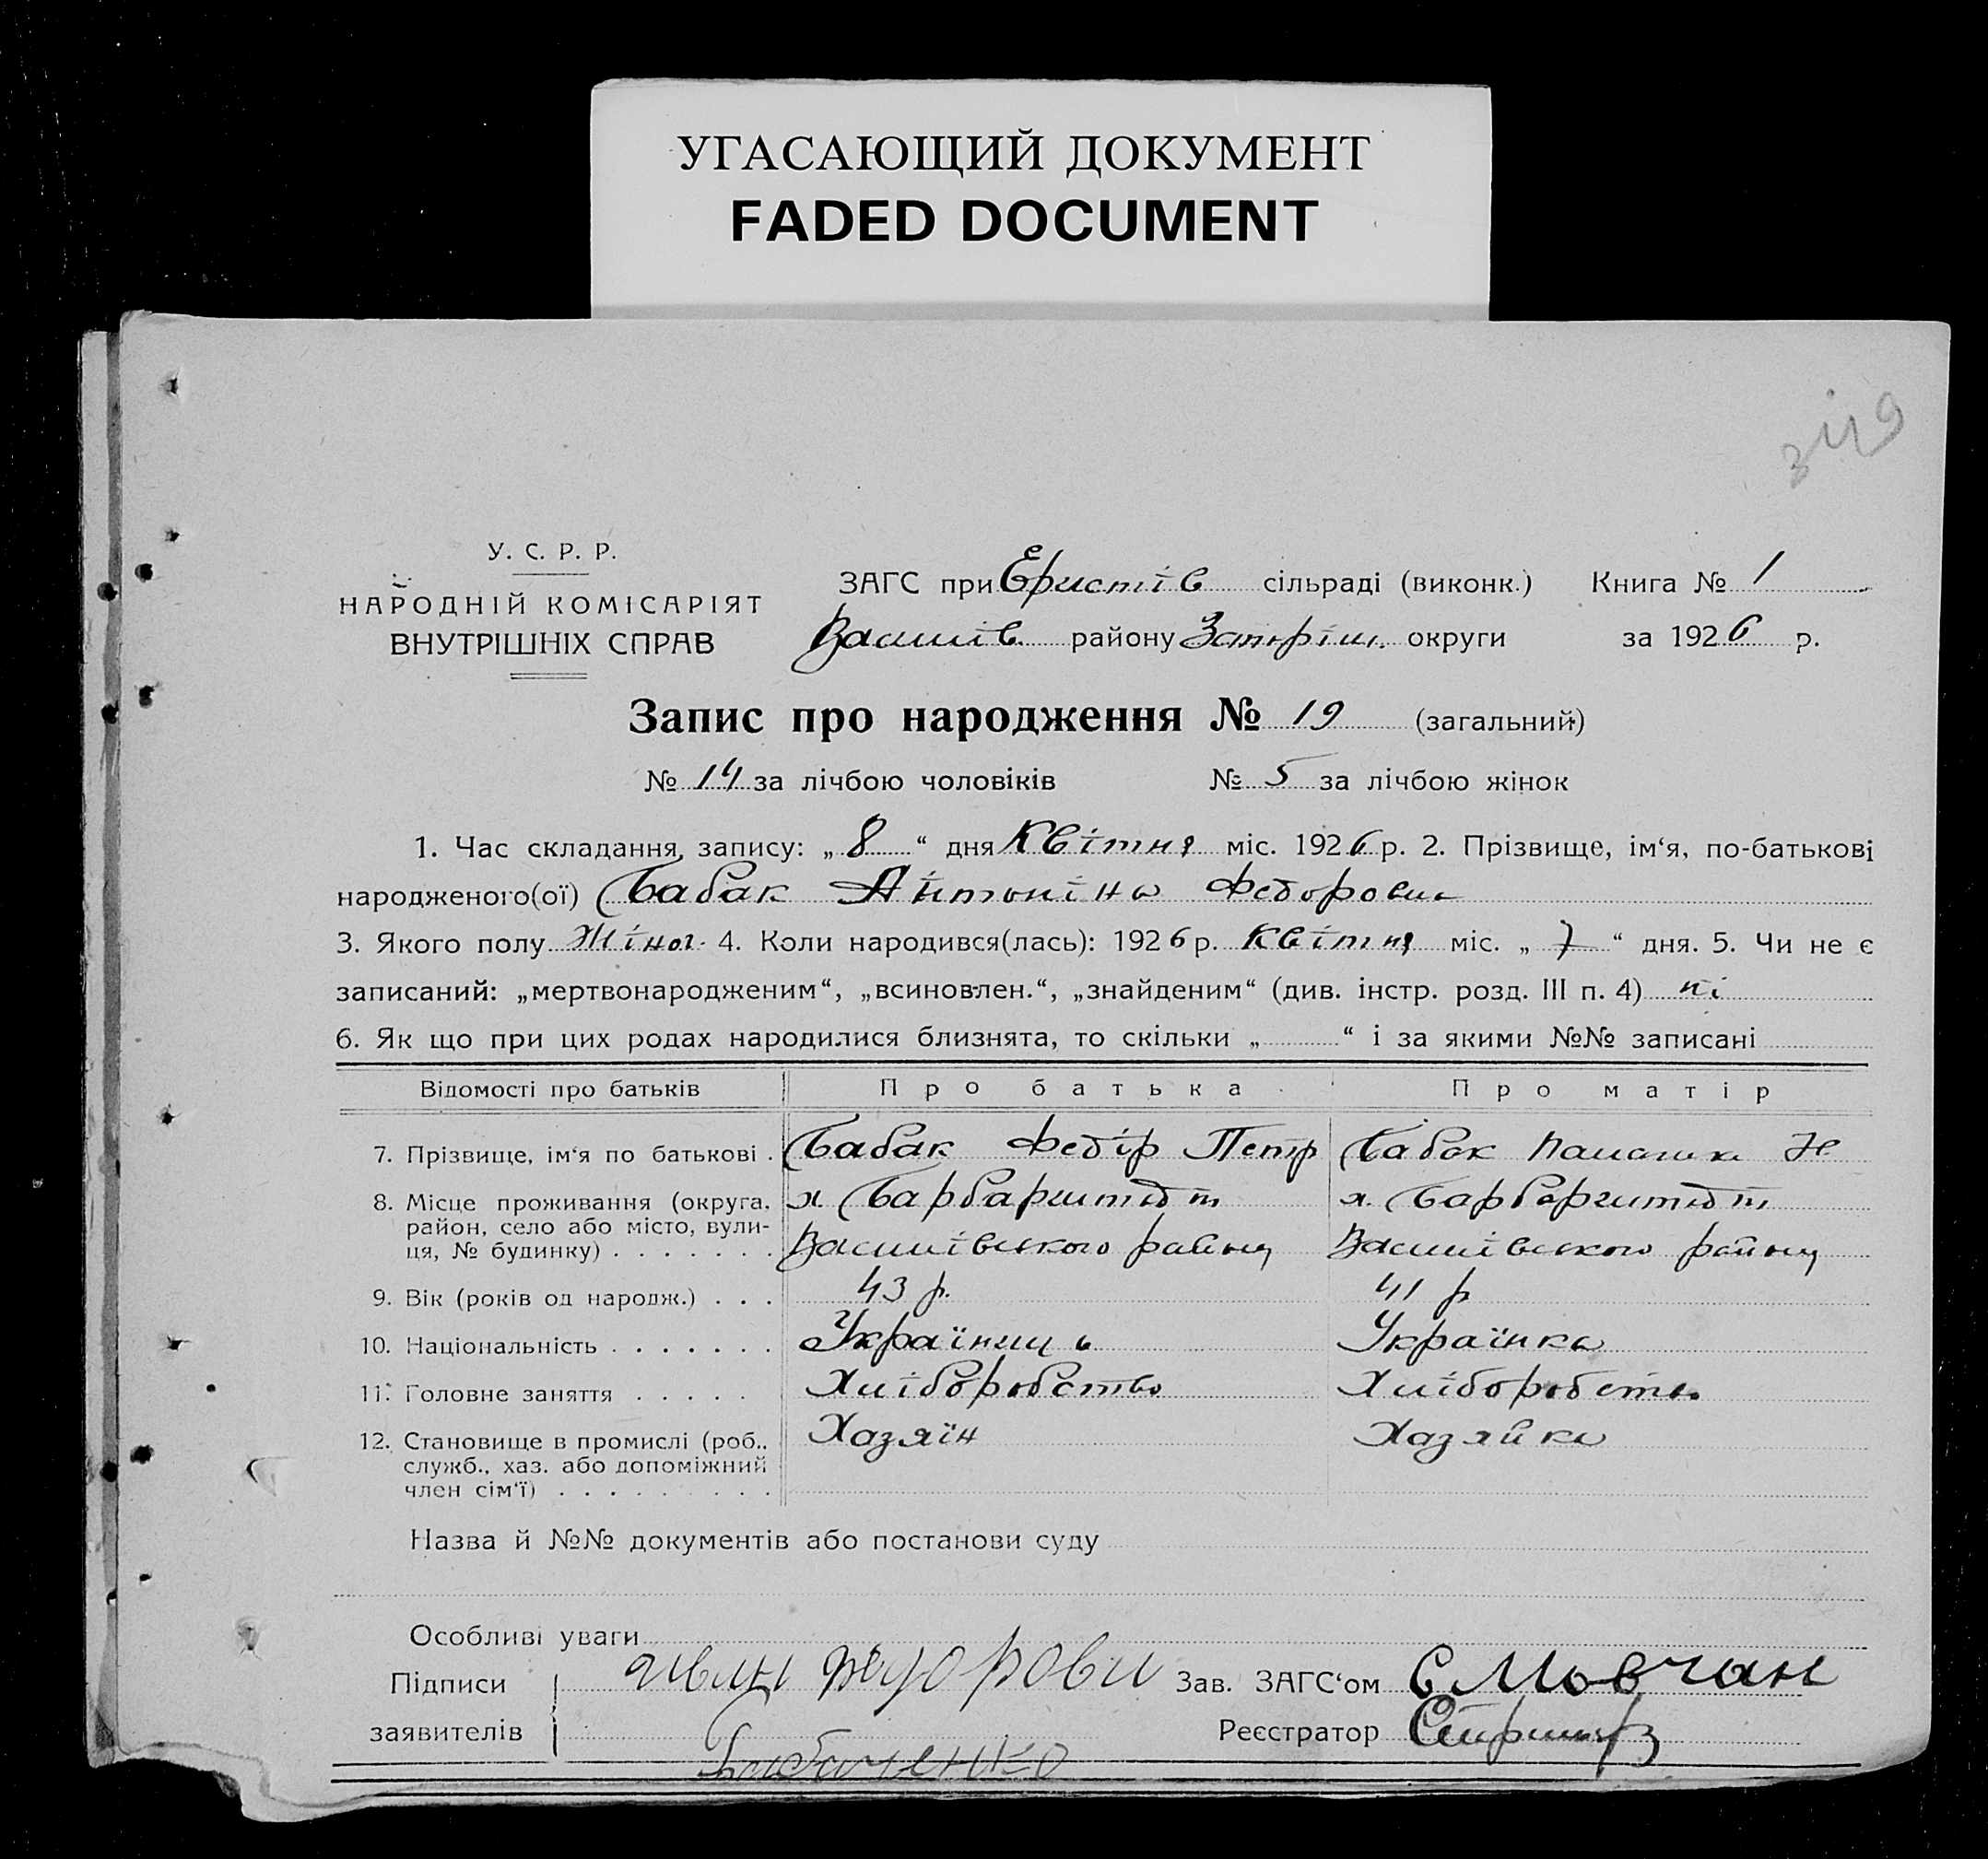 УГАСАЮЩИЙ ДОКУМЕНТ
FADED DOCUMENT
У. С. Р. Р.
НАРОДНІЙ КОМІСАРІЯТ
ВНУТРІШНІХ СПРАВ
ЗАГС при Еристів сільраді (виконк.) Книга № 1
Васили́в району округи за 1926 р.
Запис про народження № 19 (загальний)
№ 14 за лічбою чоловіків № 5 за лічбою жінок
1. Час складання запису: „8“ дня Квітня міс. 1926 р. 2. Прізвище, ім‘я, по-батькові
народженого(ої) Бабак Антоніна Федоровна
3. Якого полу Жіноч. 4. Коли народився(лась): 1926 р. Квітня міс. „7“ дня. 5. Чи не є
записаний: „мертвонародженим“, „всиновлен.“, „знайденим“ (див. інстр. розд. III п. 4) ні
6. Як що при цих родах народилися близнята, то скільки „ “ і за якими №№ записані
Відомості про батьків Про батька Про матір
7. Прізвище, ім‘я по батькові . Бабак Федір Петр Бабак
8. Місце проживання (округа, район, село або місто, вулиця, № будинку) х. х.
Василівського району Василівського району
9. Вік (років од народж.) . . . 43 р. 41 р
10. Національність . . . . . . . Українець Українка
11. Головне заняття . . . . . Хліборобство Хліборобство
12. Становище в промислі (роб., Хазяїн Хазяйка
служб., хаз. або допоміжний
член сім‘ї) . . . . . . . . .
Назва й №№ документів або постанови суду
Особливі уваги
Підписи Зав. ЗАГС‘ом С Мовчан
заявителів Реєстратор
Бабаченко